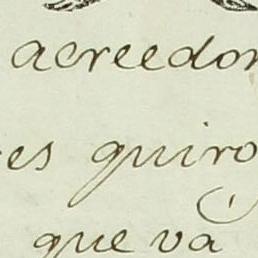 acreedor
es quiro
que va